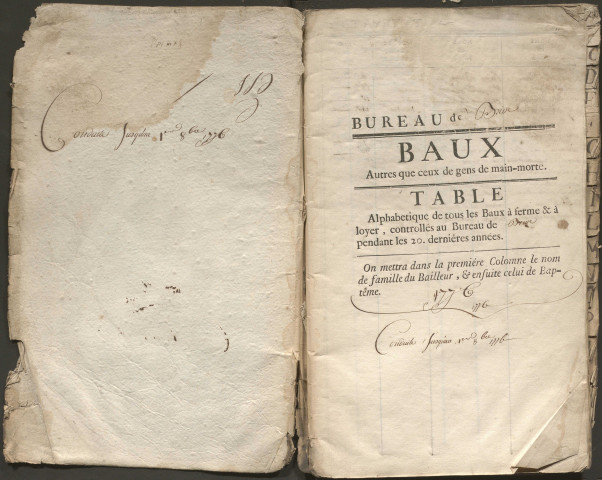 Conduite Jusqu'au 1er 8bre 1776
BUREAU de
BAUX
Autres que ceux de gens de main-morte.
TABLE
Alphabetique de tous les Baux à ferme & à
loyer, controllés au Bureau de
pendant les 20. derniéres années.
On mettra dans la premiére Colomne le nom
de famille du Bailleur, & ensuite celui de Bap-
tême.
1776
1776
Conduite Jusqu'au 1er 8bre 1776